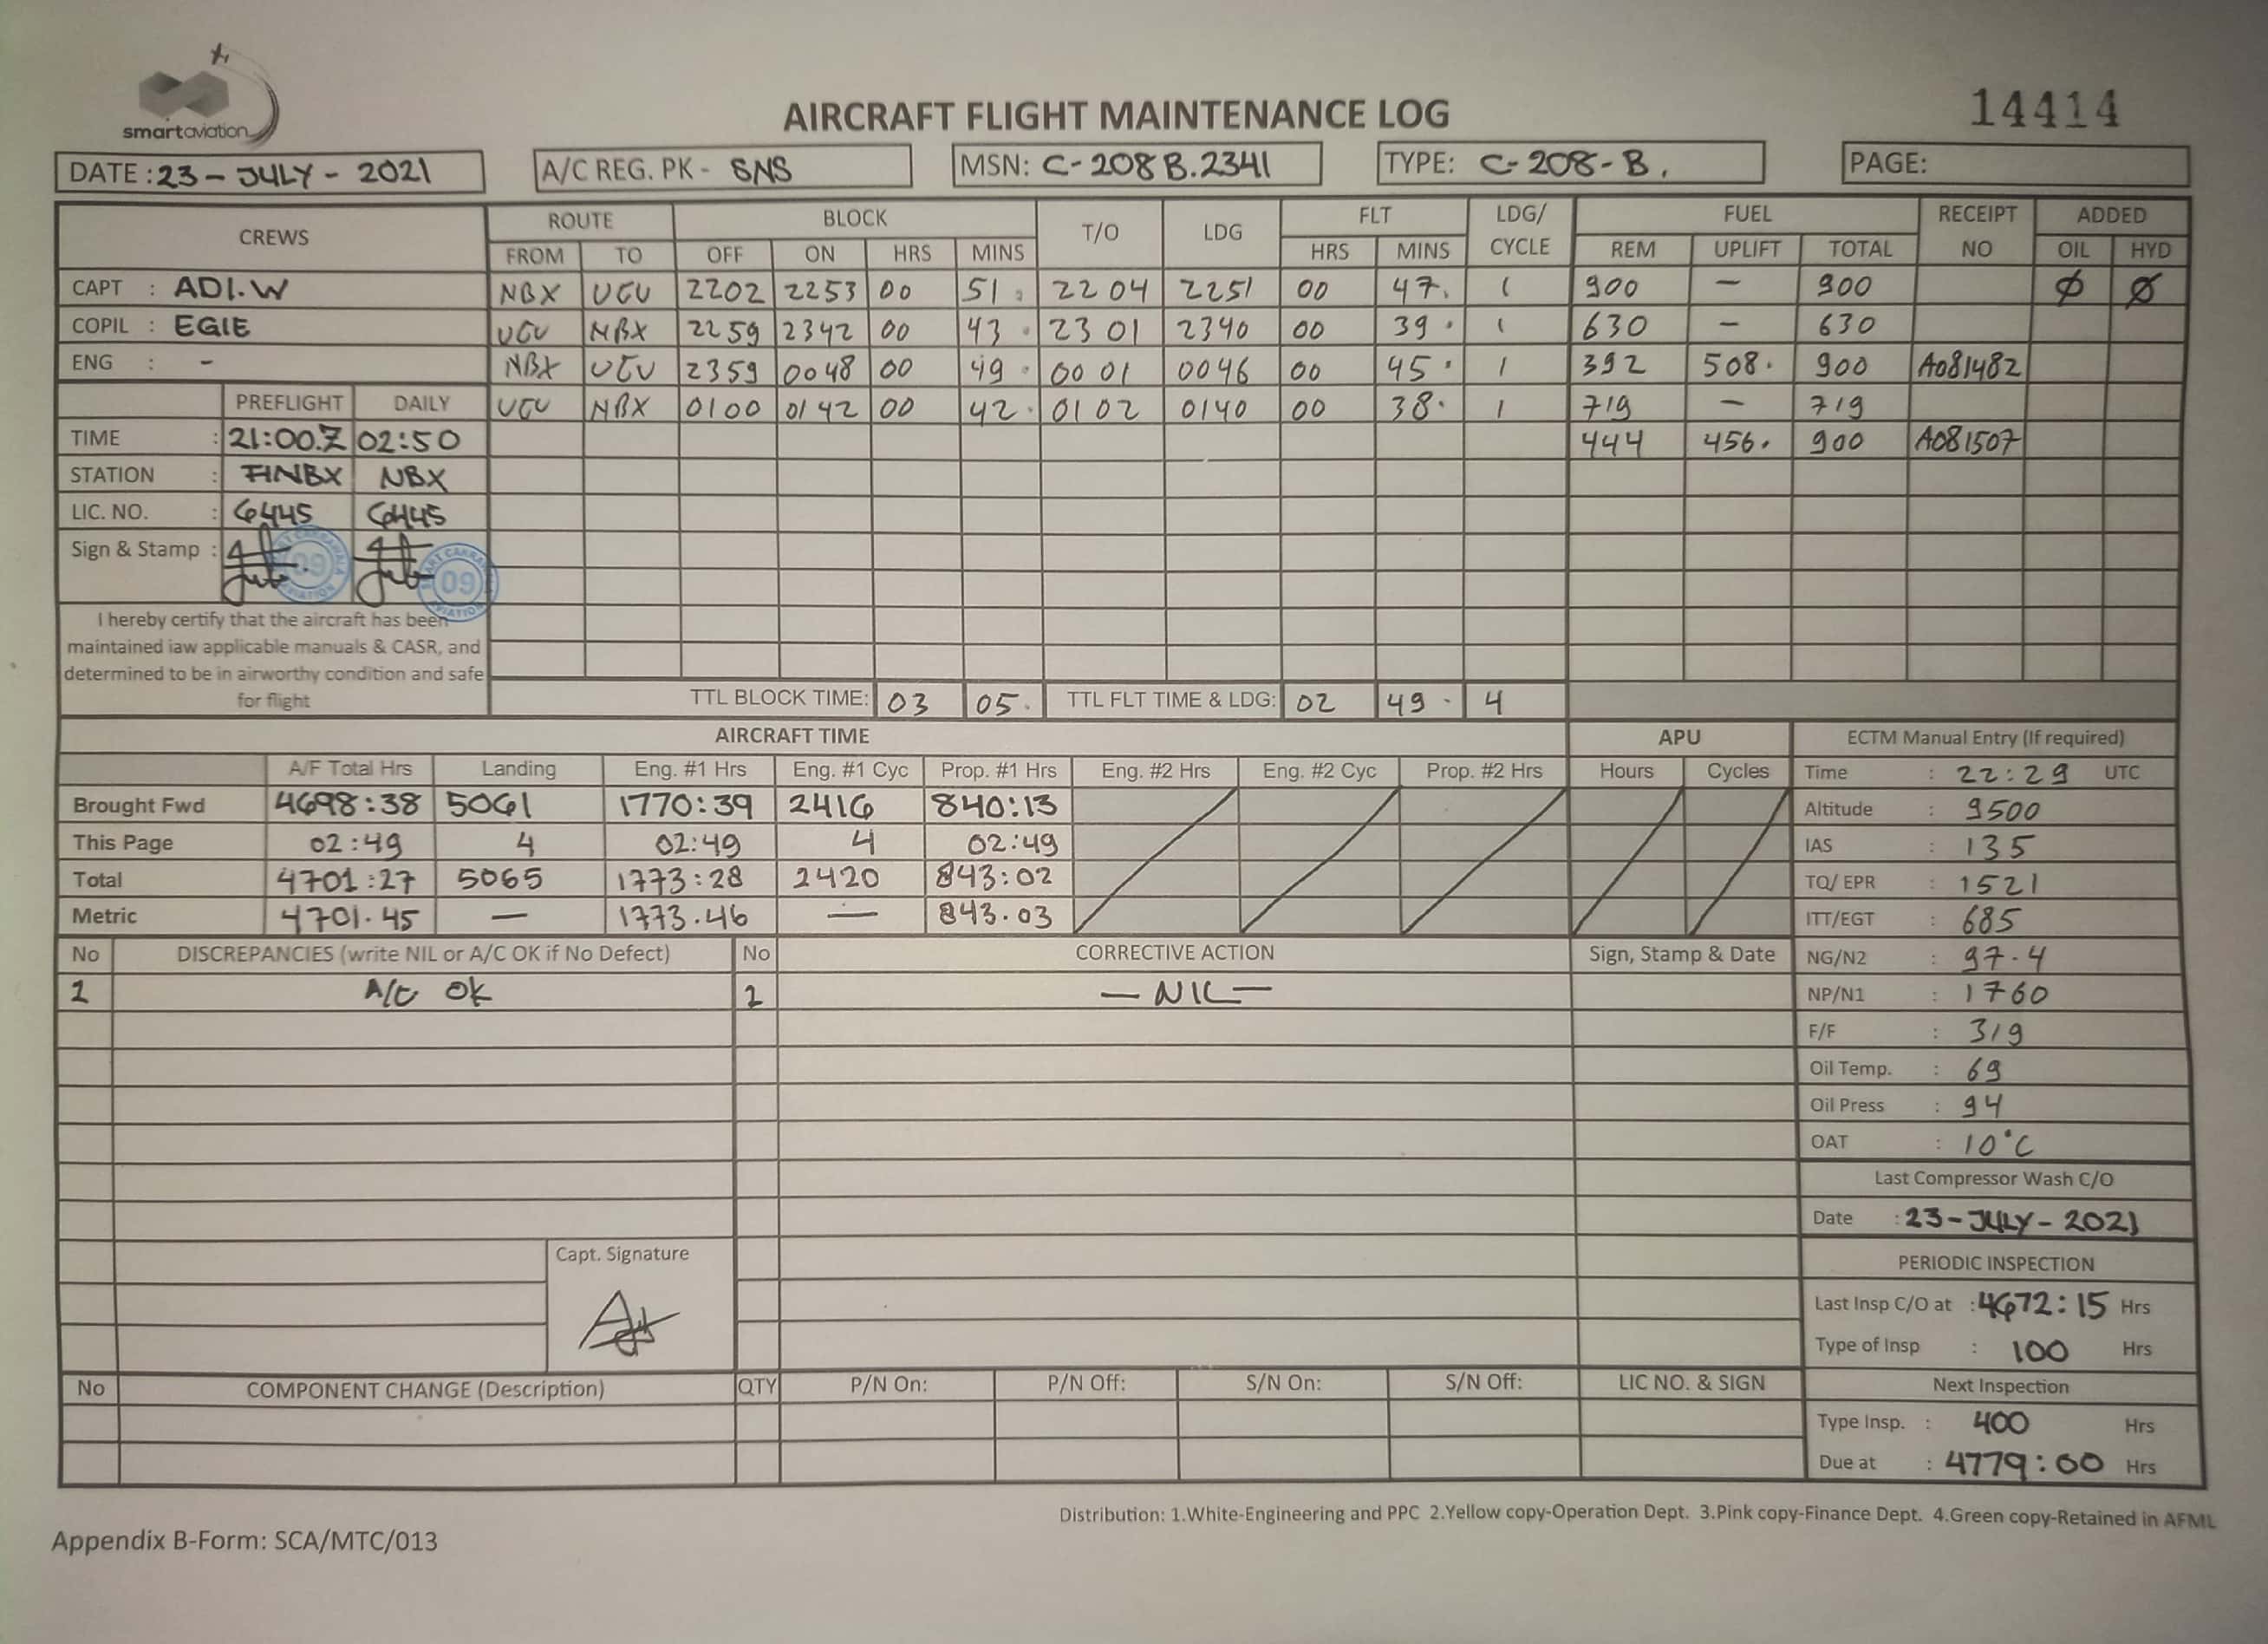 smartaviation
AIRCRAFT FLIGHT MAINTENANCE LOG
14414
DATE : 23 - JULY - 2021 A/C REG. PK - SNS MSN: C-208 B.2341 TYPE: C-208-B. PAGE:
CREWS ROUTE BLOCK T/O LDG FLT LDG/ CYCLE FUEL RECEIPT NO ADDED
FROM TO OFF ON HRS MINS HRS MINS REM UPLIFT TOTAL OIL HYD
CAPT : ADI.W NBX UGU 2202 2253 00 51. 2204 2251 00 47. 1 900 — 900 Ø Ø
COPIL : EGIE UGU NBX 2259 2342 00 43. 2301 2340 00 39. 1 630 — 630
ENG : - NBX UGU 2359 0048 00 49. 0001 0046 00 45. 1 392 508. 900 A081482
PREFLIGHT DAILY UGU NBX 0100 0142 00 42. 0102 0140 00 38. 1 719 — 719
TIME : 21:00.Z 02:50 444 456. 900 A081507
STATION : NBX NBX
LIC. NO. : 6445 6445
Sign & Stamp : 09 09
I hereby certify that the aircraft has been
maintained iaw applicable manuals & CASR, and
determined to be in airworthy condition and safe
for flight
TTL BLOCK TIME: 03 05. TTL FLT TIME & LDG: 02 49. 4
AIRCRAFT TIME APU ECTM Manual Entry (If required)
A/F Total Hrs Landing Eng. #1 Hrs Eng. #1 Cyc Prop. #1 Hrs Eng. #2 Hrs Eng. #2 Cyc Prop. #2 Hrs Hours Cycles Time : 22:29 UTC
Brought Fwd 4698:38 5061 1770:39 2416 840:13 Altitude : 9500
This Page 02:49 4 02:49 4 02:49 IAS : 135
Total 4701:27 5065 1773:28 2420 843:02 TQ/ EPR : 1521
Metric 4701.45 — 1773.46 — 843.03 ITT/EGT : 685
No DISCREPANCIES (write NIL or A/C OK if No Defect) No CORRECTIVE ACTION Sign, Stamp & Date NG/N2 : 97.4
1 A/C OK 1 — NIL — NP/N1 : 1760
F/F : 319
Oil Temp. : 69
Oil Press : 94
OAT : 10°C
Last Compressor Wash C/O
Date : 23-JULY-2021
Capt. Signature
PERIODIC INSPECTION
Last Insp C/O at : 4672:15 Hrs
Type of Insp : 100 Hrs
No COMPONENT CHANGE (Description) QTY P/N On: P/N Off: S/N On: S/N Off: LIC NO. & SIGN Next Inspection
Type Insp. : 400 Hrs
Due at : 4779:00 Hrs
Distribution: 1.White-Engineering and PPC 2.Yellow copy-Operation Dept. 3.Pink copy-Finance Dept. 4.Green copy-Retained in AFML
Appendix B-Form: SCA/MTC/013